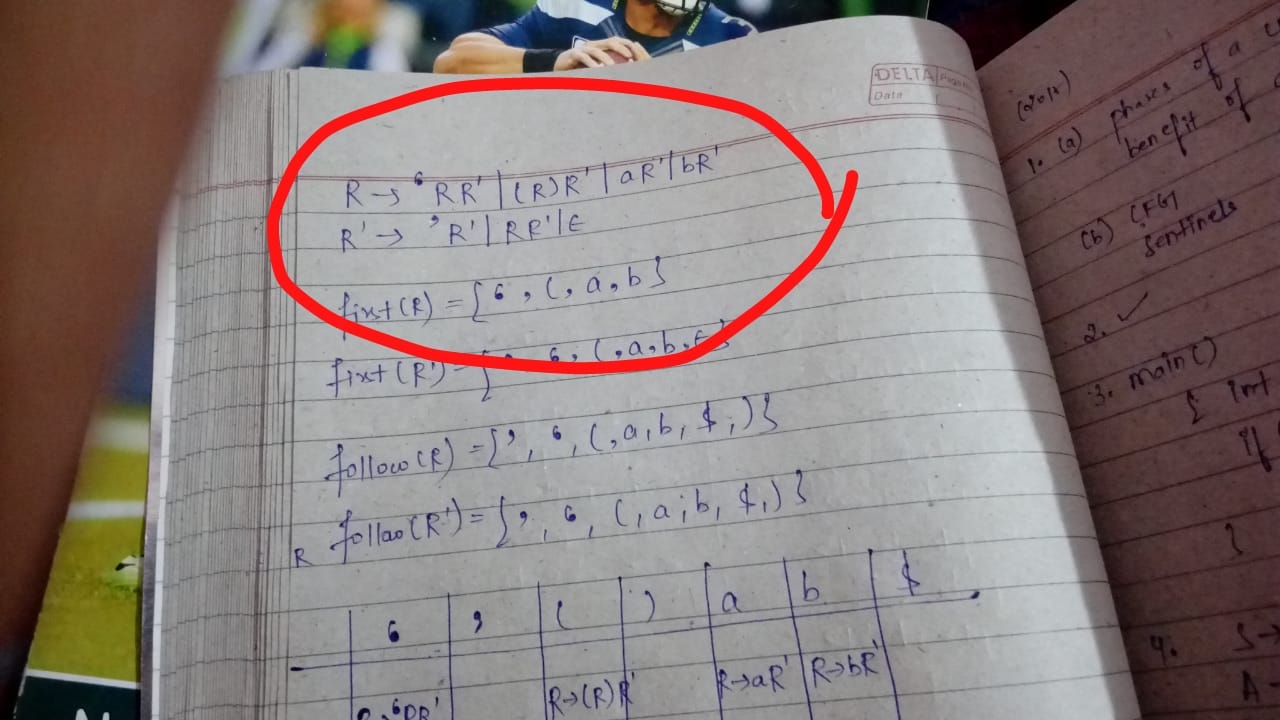 DELTA
Date
R → ‘RR' | (R)R' | aR' | bR'
R' → ’R' | RR' | ∈
first(R) = { ‘ , (, a, b }
first(R') = { ’, ‘, (, a, b, ∈ }
follow(R) = { ’, ‘, (, a, b, $, ) }
follow(R') = { ’, ‘, (, a, b, $, ) }
R
‘ ’ ( ) a b $
R→(R)R' R→aR' R→bR'
(2018)
1. (a) phases of a
benefit of
(b) CFG
Sentinels
2. ✓
3. main()
{ int
if
}
4. S→
A→